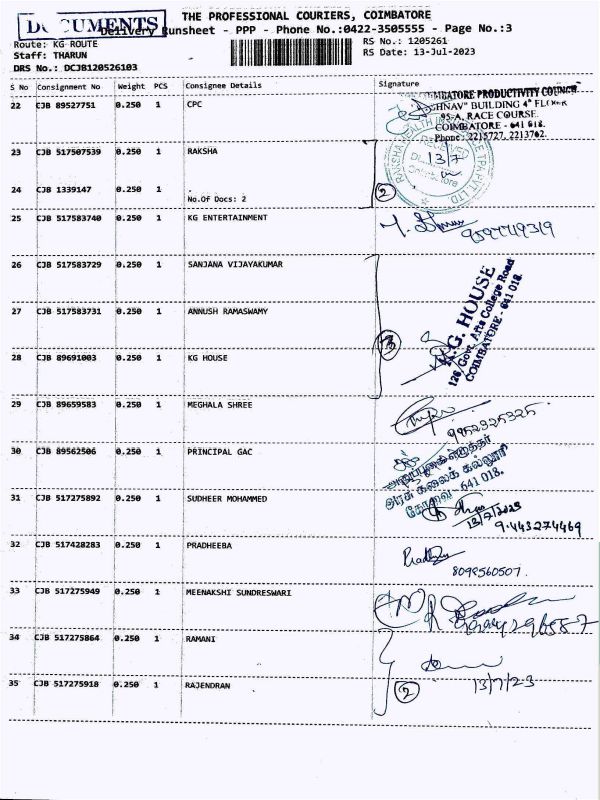 DOCUMENTS
THE PROFESSIONAL COURIERS, COIMBATORE
Delivery Runsheet - PPP - Phone No.:0422-3505555 - Page No.:3
Route: KG ROUTE
RS No.: 1205261
Staff: THARUN
RS Date: 13-Jul-2023
DRS No.: DCJB120526103
S No Consignment No Weight PCS Consignee Details Signature
22 CJB 89527751 0.250 1 CPC
COIMBATORE PRODUCTIVITY COUNCIL
BUILDING 4th FLOOR
95-A, RACE COURSE
COIMBATORE - 641 018.
Phone: 2215727, 2213702.
23 CJB 517507539 0.250 1 RAKSHA
13/7
24 CJB 1339147 0.250 1 .
No.Of Docs: 2
2
25 CJB 517583740 0.250 1 KG ENTERTAINMENT
26 CJB 517583729 0.250 1 SANJANA VIJAYAKUMAR
27 CJB 517583731 0.250 1 ANNUSH RAMASWAMY
28 CJB 89691003 0.250 1 KG HOUSE
3
K.G. HOUSE
126, Govt. Arts College Road
COIMBATORE - 641 018.
29 CJB 89659583 0.250 1 MEGHALA SHREE
9952325325
30 CJB 89562506 0.250 1 PRINCIPAL GAC
அரசு கலைக் கல்லூரி
கோவை - 641 018.
31 CJB 517275892 0.250 1 SUDHEER MOHAMMED
13/7/2023
9.443274469
32 CJB 517428283 0.250 1 PRADHEEBA
8098560507.
33 CJB 517275949 0.250 1 MEENAKSHI SUNDRESWARI
34 CJB 517275864 0.250 1 RAMANI
35 CJB 517275918 0.250 1 RAJENDRAN
2
13/7/23